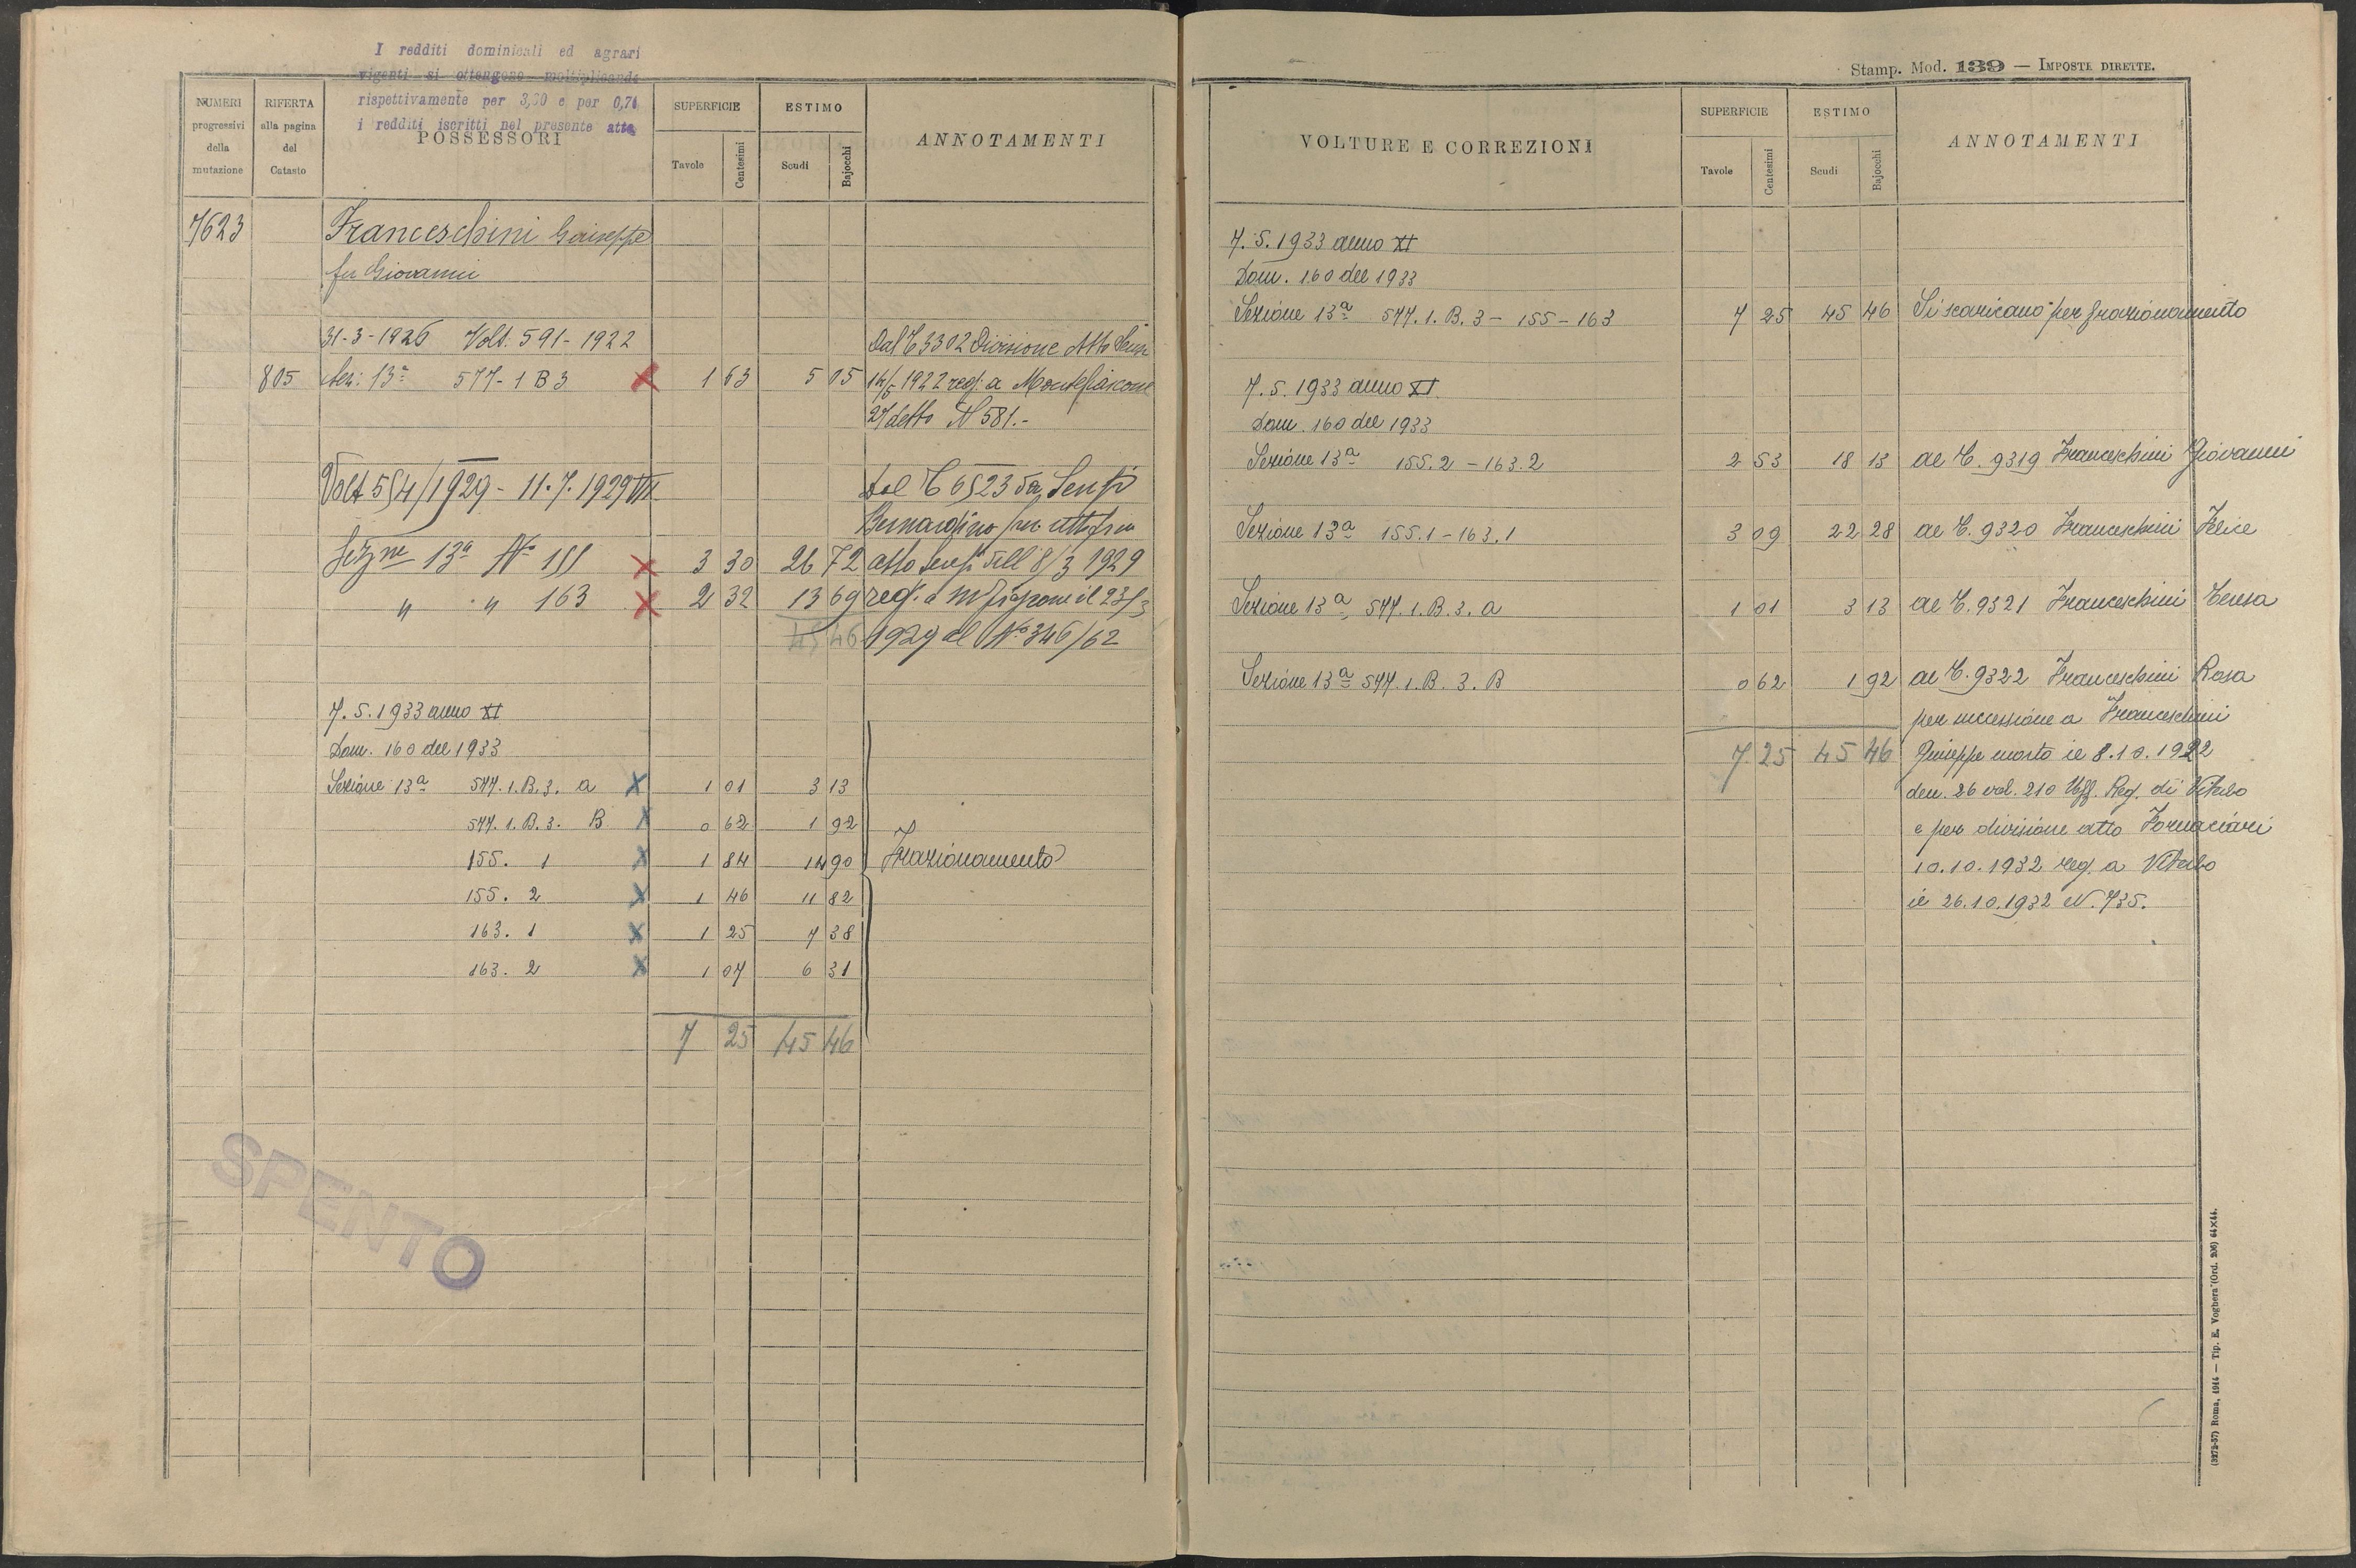 I redditi dominicali ed agrari
vigenti si ottengono moltiplicando
rispettivamente per 3,30 e per 0,71
i redditi iscritti nel presente atto.
NUMERI progressivi della mutazione
RIFERTA alla pagina del Catasto
POSSESSORI
SUPERFICIE
Tavole Centesimi
ESTIMO
Scudi Bajocchi
ANNOTAMENTI
7623 Franceschini Giuseppe
fu Giovanni
31-3-1926 Volt. 591-1922 Dal C 3302 Divisione Atto
805 Sez: 13ª 577-1 B 3 X 1 63 5 05 14/5 1922 reg. a Montefiascone
27 detto N 581.-
Volt 594/1929 - 11.7.1929 VII Dal C 6523 da Sensi
Bernardino per
Sezne 13ª No 155 X 3 30 26 72 atto Sensi dell 8/3 1929
" " 163 X 2 32 13 69 reg. a Mfiascone il 23/3
45 46 1929 al No 346/62
7.5.1933 anno XI
Dom. 160 del 1933
Sezione 13ª 577.1.B.3. a X 1 01 3 13
577.1.B.3. B X 0 62 1 92
155. 1 X 1 84 14 90 Frazionamento
155. 2 X 1 46 11 82
163. 1 X 1 25 7 38
163. 2 X 1 07 6 31
7 25 45 46
SPENTO
Stamp. Mod. 139 — IMPOSTE DIRETTE.
VOLTURE E CORREZIONI
SUPERFICIE
Tavole Centesimi
ESTIMO
Scudi Bajocchi
ANNOTAMENTI
7.5.1933 anno XI
Dom. 160 del 1933
Sezione 13ª 577.1.B.3 - 155 - 163 7 25 45 46 Si scaricano per frazionamento
7.5.1933 anno XI.
Dom. 160 del 1933
Sezione 13ª 155.2 - 163.2 2 53 18 13 al C. 9319 Franceschini Giovanni
Sezione 13ª 155.1 - 163.1 3 09 22 28 al C. 9320 Franceschini Felice
Sezione 13ª 577.1.B.3.a 1 01 3 13 al C. 9321 Franceschini Teresa
Sezione 13ª 577.1.B.3.B 0 62 1 92 al C. 9322 Franceschini Rosa
per successione a Franceschini
7 25 45 46 Giuseppe morto il 8.10.1922
den. 26 vol. 210 Uff. Reg. di Viterbo
e per divisione atto Fornaciari
10.10.1932 reg. a Viterbo
il 26.10.1932 N. 735.
(3272-57) Roma, 1914 — Tip. E. Voghera (Ord. 206) 64×44.